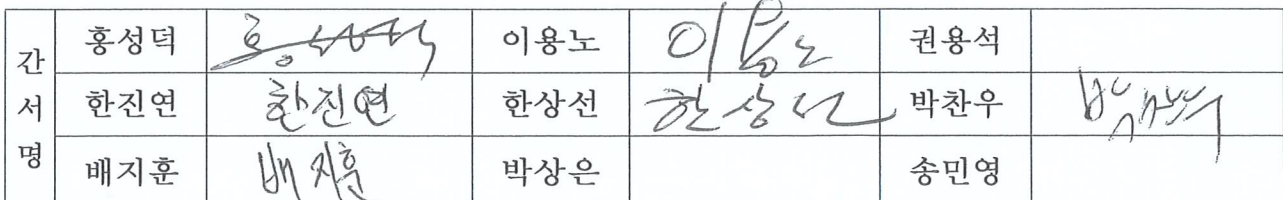 간서명
홍성덕 홍성덕 이용노 이용노 권용석
한진연 한진연 한상선 한상선 박찬우
배지훈 배지훈 박상은 송민영